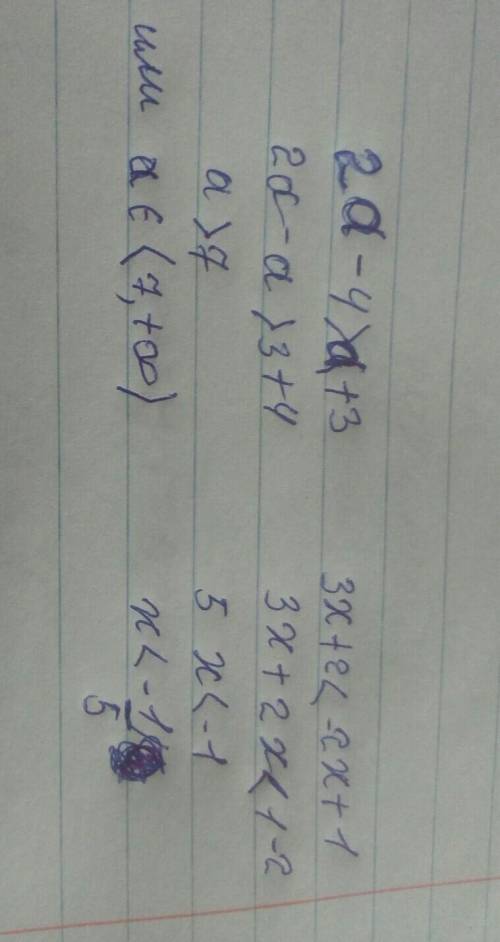 2a-4>a+3
2a-a>3+4
a>7
или a∈(7,+∞)
3x+2<-2x+1
3x+2x<1-2
5x<-1
x<-1/5